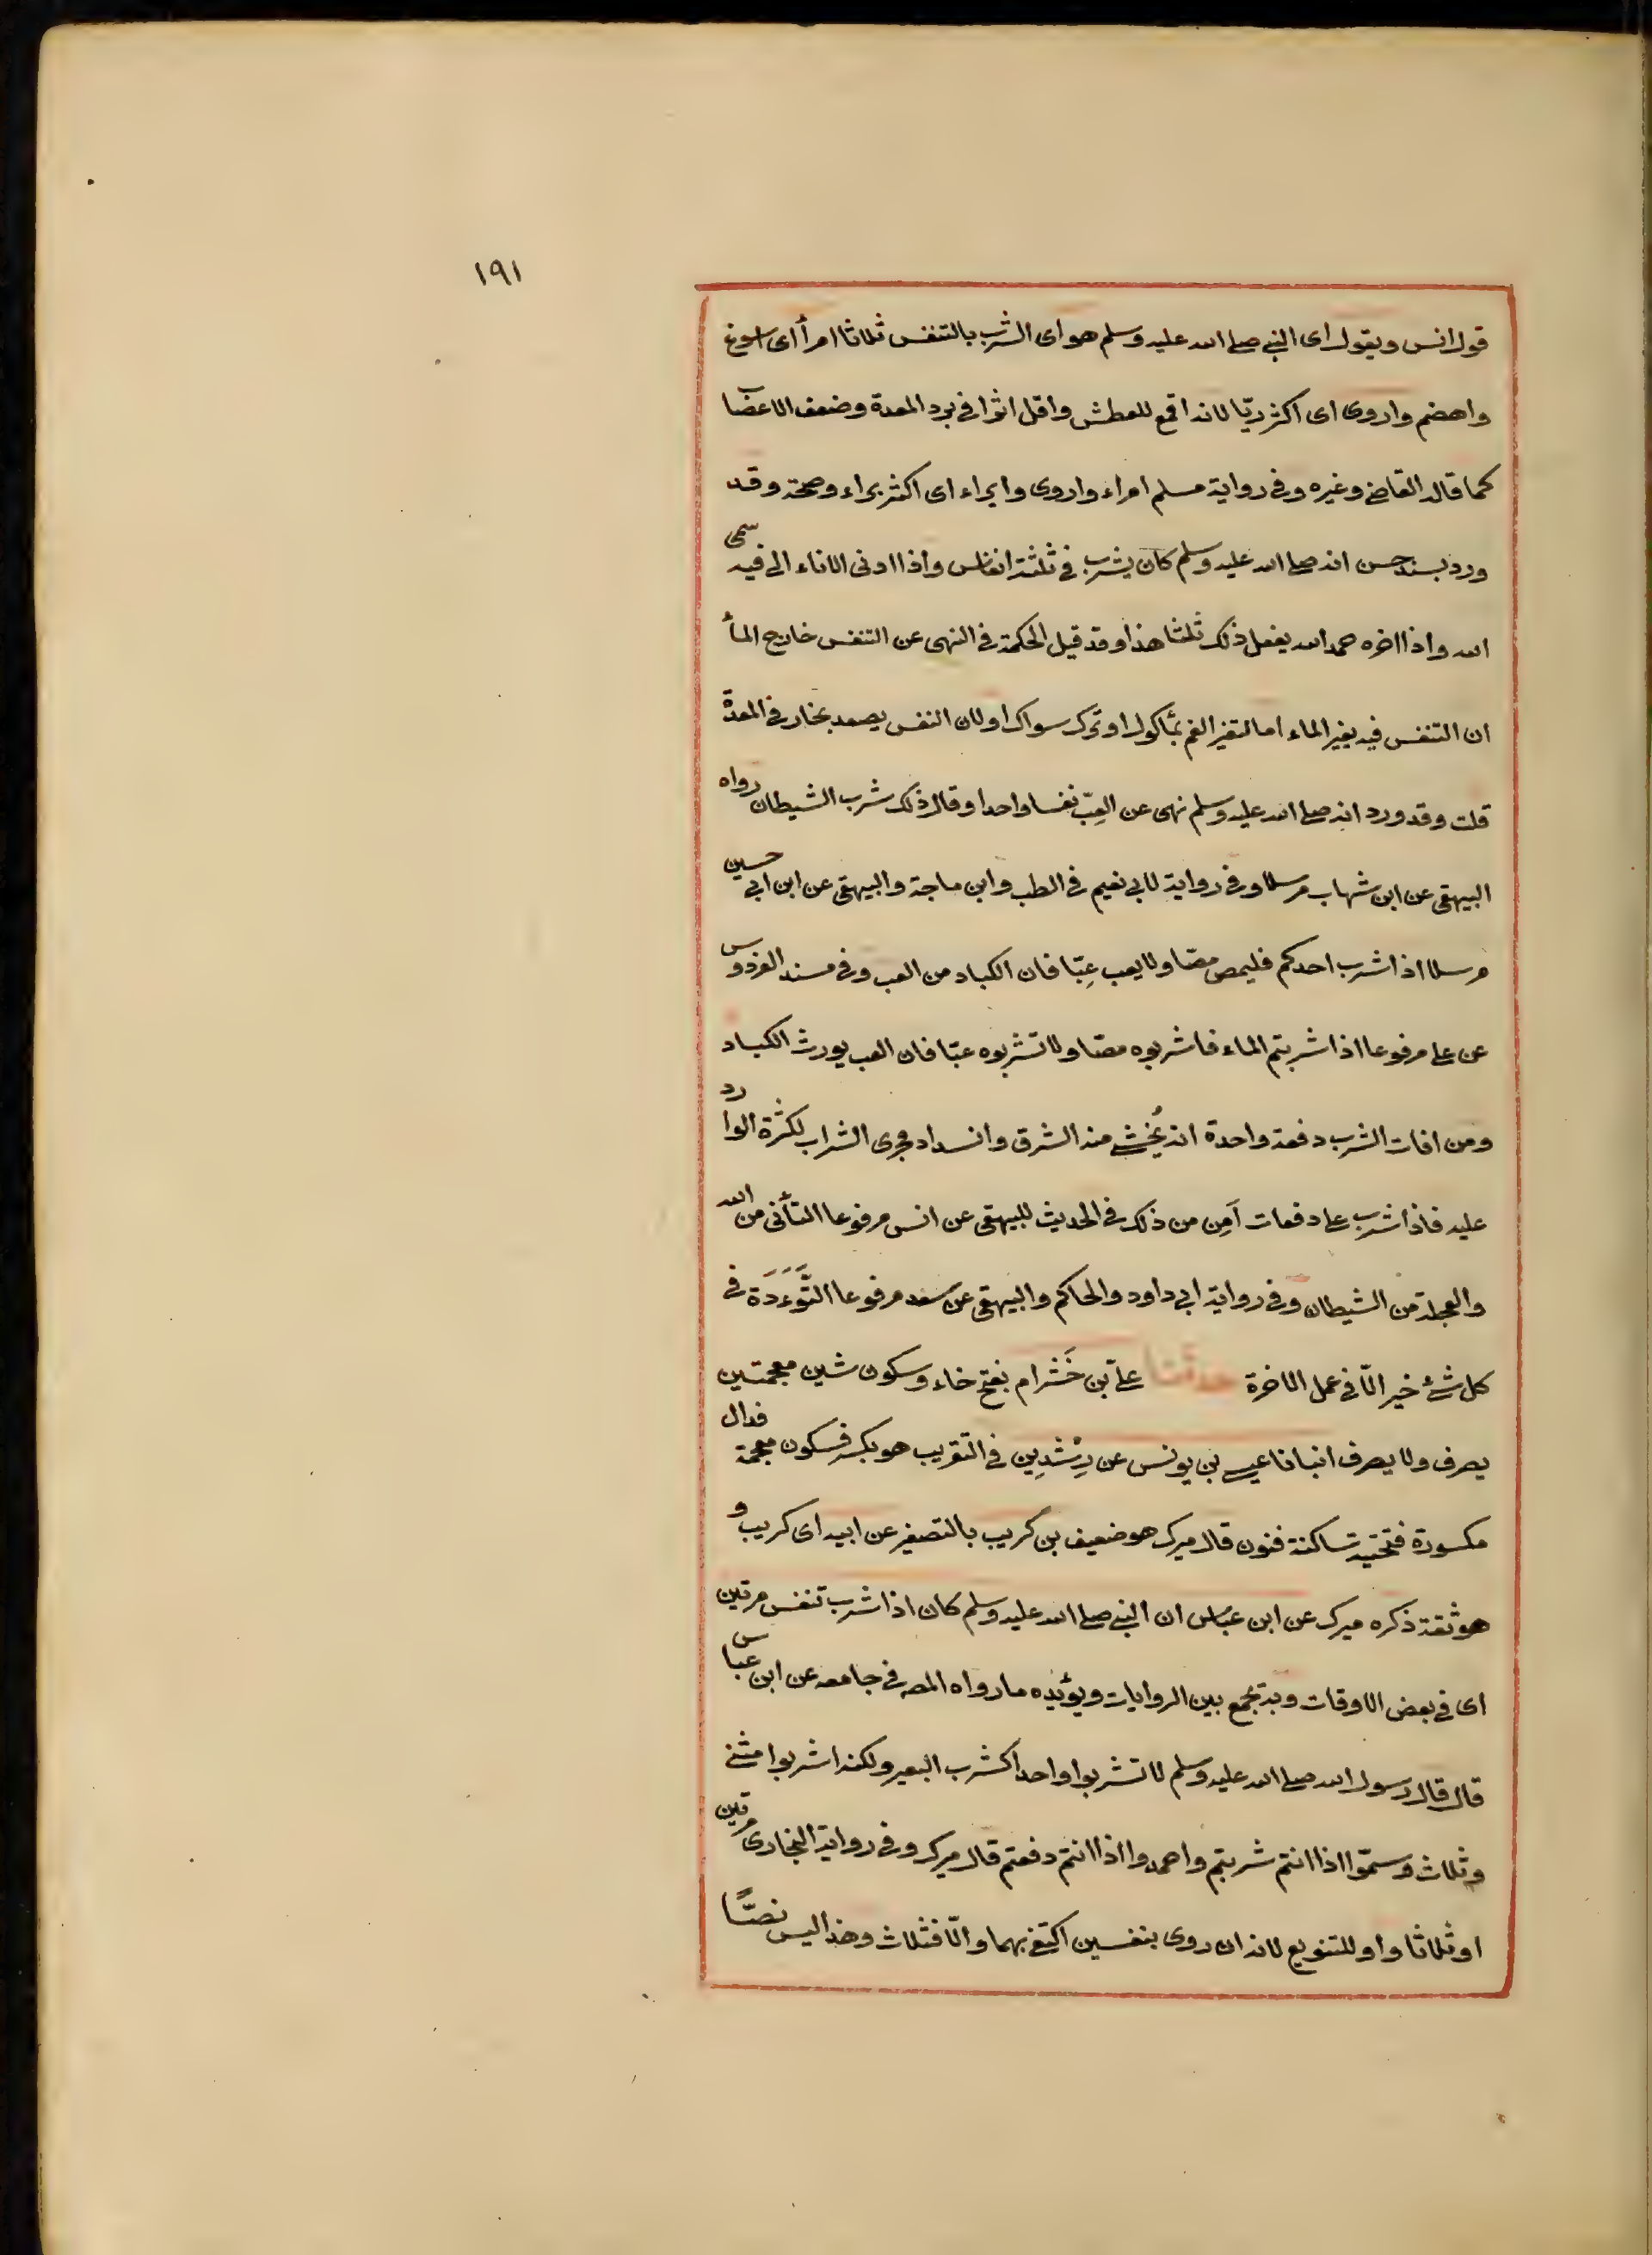 ١٩١
قول انس ويقول اى النبى صلى الله عليه وسلم هو اى الشرب بالتنفس ثلاثا امرأ اى اسوغ
واهضم واروى اى اكثر ريّا لانه اقمع للعطش واقل اثرا فى برد المعدة وضعف الاعضا
كما قال القاضى وغيره وفى رواية مسلم امراء واروى وابراء اى اكثر براء وصحة وقد
ورد بسند حسن انه صلى الله عليه وسلم كان يشرب فى ثلثة انفاس واذا ادنى الاناء الى فيه سمى
الله واذا اخره حمد الله يفعل ذلك ثلثا هذا وقد قيل الحكمة فى النهى عن التنفس خارج المأ
ان التنفس فيه يغير الماء اما لتغير الفم بمأكول او ترك سواك او لان النفس يصعد بخار فى المعدة
قلت وقد ورد انه صلى الله عليه وسلم نهى عن العِبّ نفسا واحدا وقال ذلك شرب الشيطان رواه
البيهقى عن ابن شهاب مرسلا وفى رواية لابى نعيم فى الطب وابن ماجة والبيهقى عن ابن ابى حسين
مرسلا اذا شرب احدكم فليمص مصّا ولا يعب عِبّا فان الكباد من العب وفى مسند الفردوس
عن على مرفوعا اذا شربتم الماء فاشربوه مصّا ولا تشربوه عبّا فان العب يورث الكباد
ومن افات الشرب دفعة واحدة انه يُخشى منه الشرق وانسداد مجرى الشراب لكثرة الوارد
عليه فاذا شرب على دفعات آمِن من ذلك فى الحديث للبيهقى عن انس مرفوعا التأنى من الله
والعجلة من الشيطان وفى رواية ابى داود والحاكم والبيهقى عن سعد مرفوعا التُّوءَدَة فى
كل شئ خير الّا فى عمل الاخرة حدثنا علىّ بن خَشْرام بفتح خاء وسكون شين معجمتين
يصرف ولا يصرف انبانا عيسى بن يونس عن رِشْدِين فى التقريب هو بكسر فسكون معجمة فدال
مكسورة فتحتية ساكنة فنون قال ميرك هو ضعيف بن كريب بالتصغير عن ابيه اى كريب و
هو ثقة ذكره ميرك عن ابن عباس ان النبى صلى الله عليه وسلم كان اذا شرب تنفس مرتين
اى فى بعض الاوقات وبه تجمع بين الروايات ويؤيده ما رواه المص فى جامعه عن ابن عباس
قال قال رسول الله صلى الله عليه وسلم لا تشربوا واحدا كشرب البعير ولكنه اشربوا مثنى
وثلاث وسمّوا اذا انتم شربتم واحمدوا اذا انتم دفعتم قال ميرك وفى رواية البخارى مرتين
او ثلاثا واو للتنويع لانه ان روى بنفسين اكتفى بهما والّا فثلاث وهذا ليس نصًّا